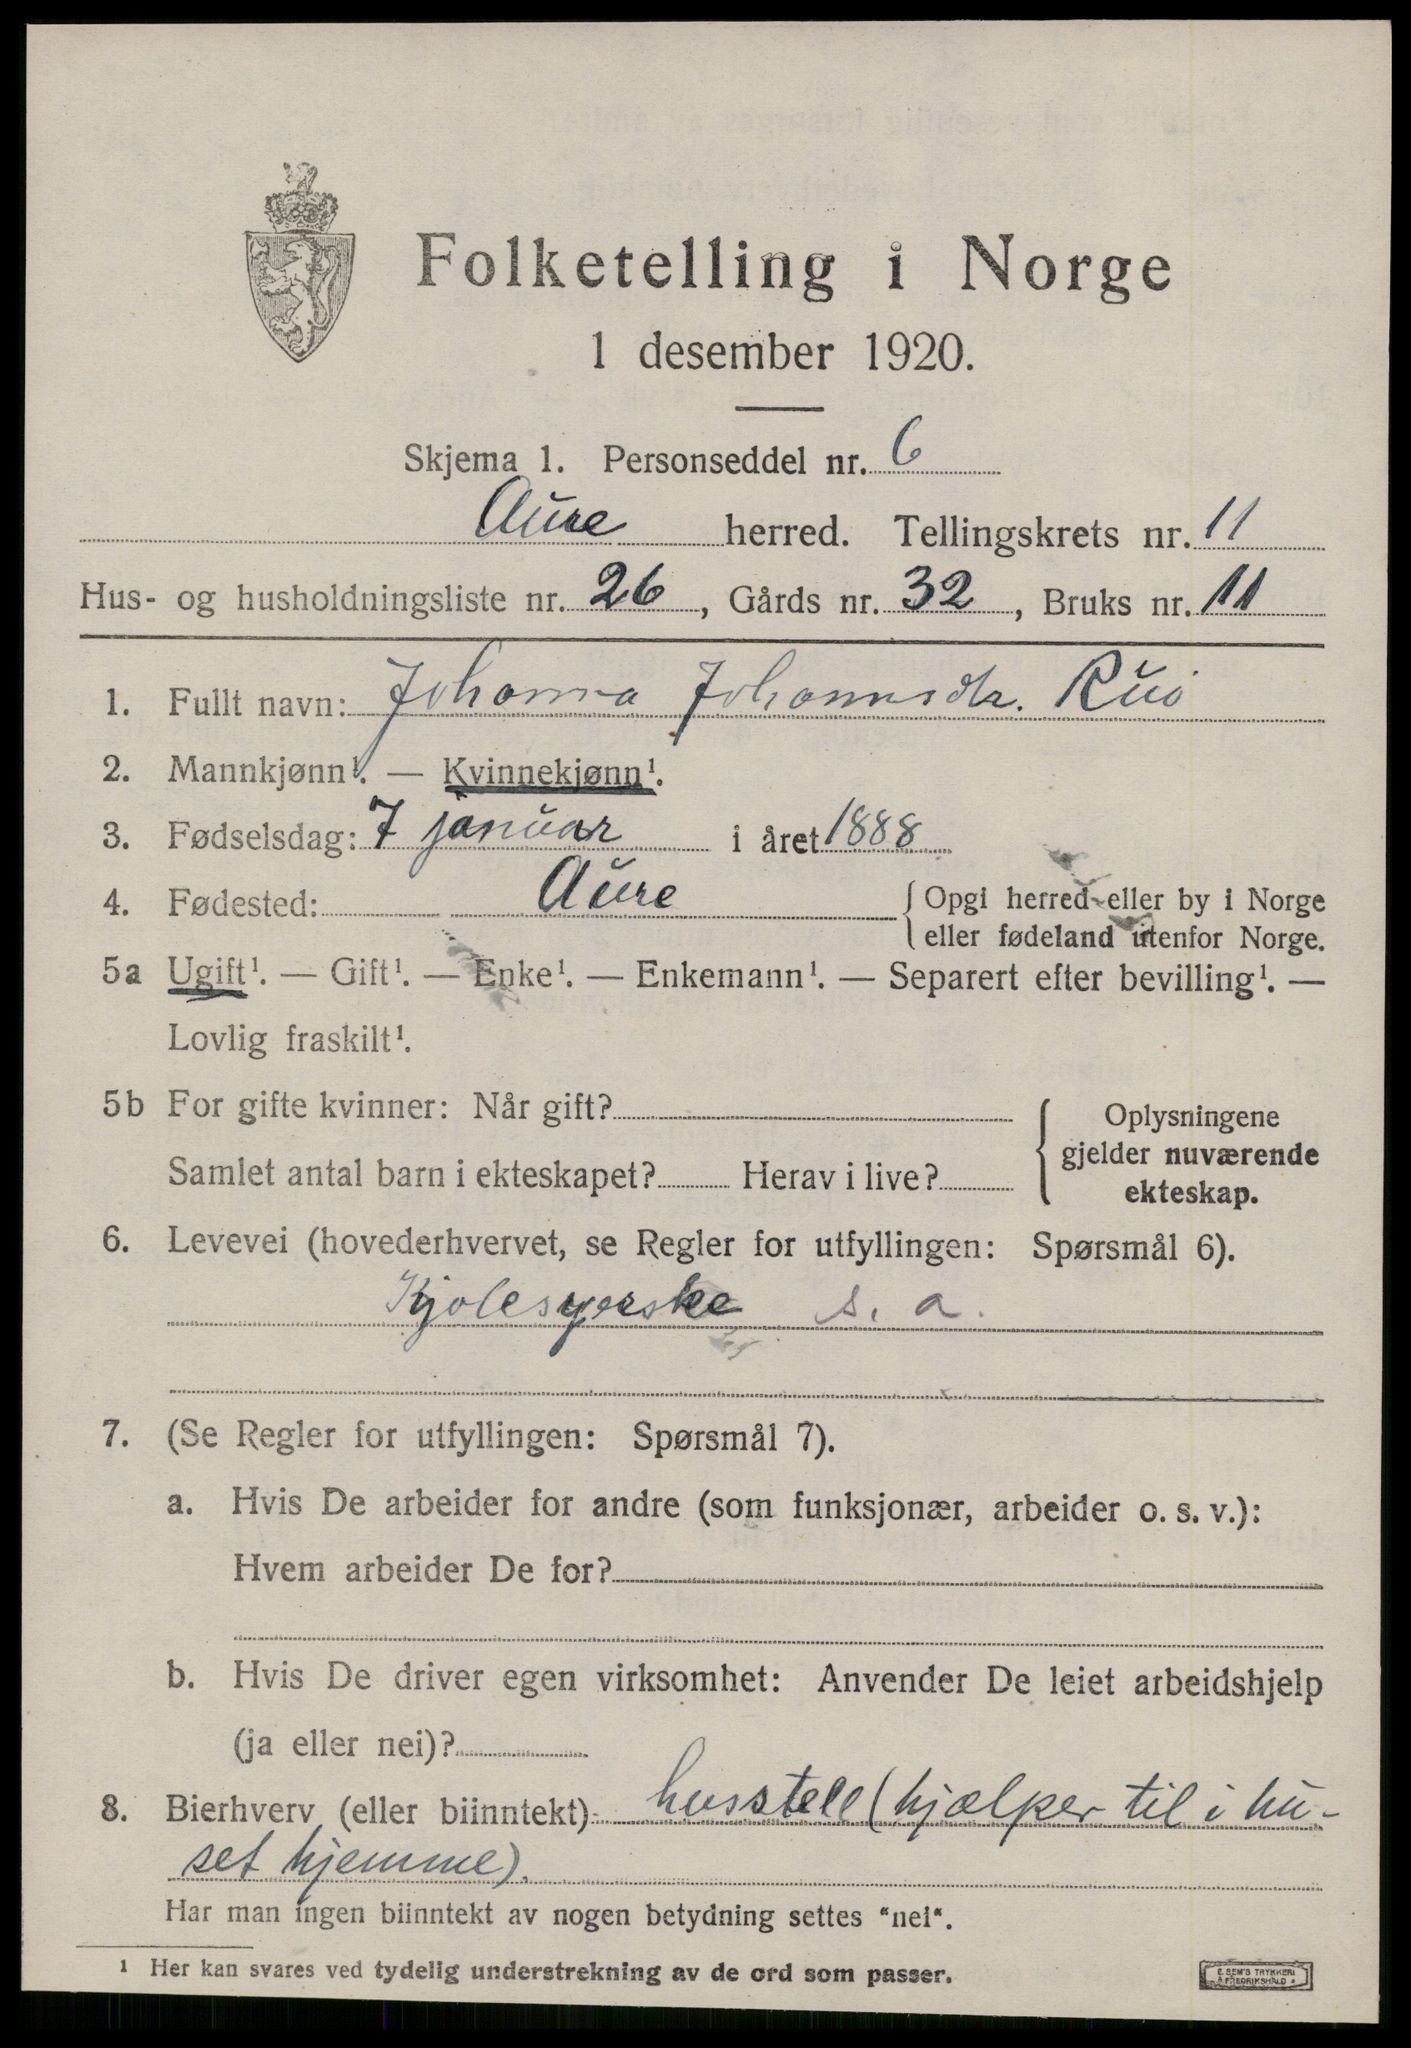 Folketelling i Norge
1 desember 1920.
Skjema 1. Personseddel nr. 6
Aure herred. Tellingskrets nr. 11
Hus- og husholdningsliste nr. 26, Gårds nr. 32, Bruks nr. 11
1. Fullt navn: Johanna Johannsdr. Ruø
2. Mannkjønn¹. — Kvinnekjønn¹.
3. Fødselsdag: 7 januar i året 1888
4. Fødested: Aure {Opgi herred eller by i Norge
eller fødeland utenfor Norge.
5a Ugift¹. — Gift¹. — Enke¹. — Enkemann¹. — Separert efter bevilling¹. —
Lovlig fraskilt¹.
5b For gifte kvinner: Når gift? { Oplysningene
gjelder nuværende
Samlet antal barn i ekteskapet? Herav i live? ekteskap.
6. Levevei (hovederhvervet, se Regler for utfyllingen: Spørsmål 6).
Kjolesyerske s. a.
7. (Se Regler for utfyllingen: Spørsmål 7).
a. Hvis De arbeider for andre (som funksjonær, arbeider o. s. v.):
Hvem arbeider De for?
b. Hvis De driver egen virksomhet: Anvender De leiet arbeidshjelp
(ja eller nei)?
8. Bierhverv (eller biinntekt) husstell (hjælper til i hu-
set hjemme).
Har man ingen biinntekt av nogen betydning settes "nei".
¹ Her kan svares ved tydelig understrekning av de ord som passer.
E. SEM'S TRYKKERI
Å FREDRIKSHALD